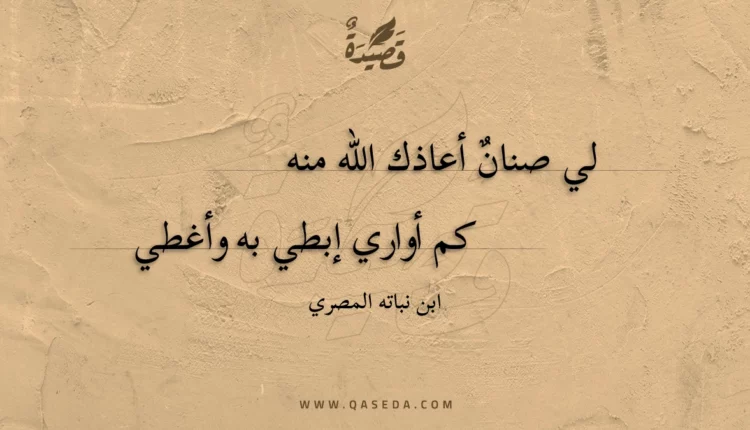 قَصِيْدَةٌ
لي صنانٌ أعاذك الله منه
كم أواري إبطي به وأغطي
ابن نباته المصري
WWW.QASEDA.COM